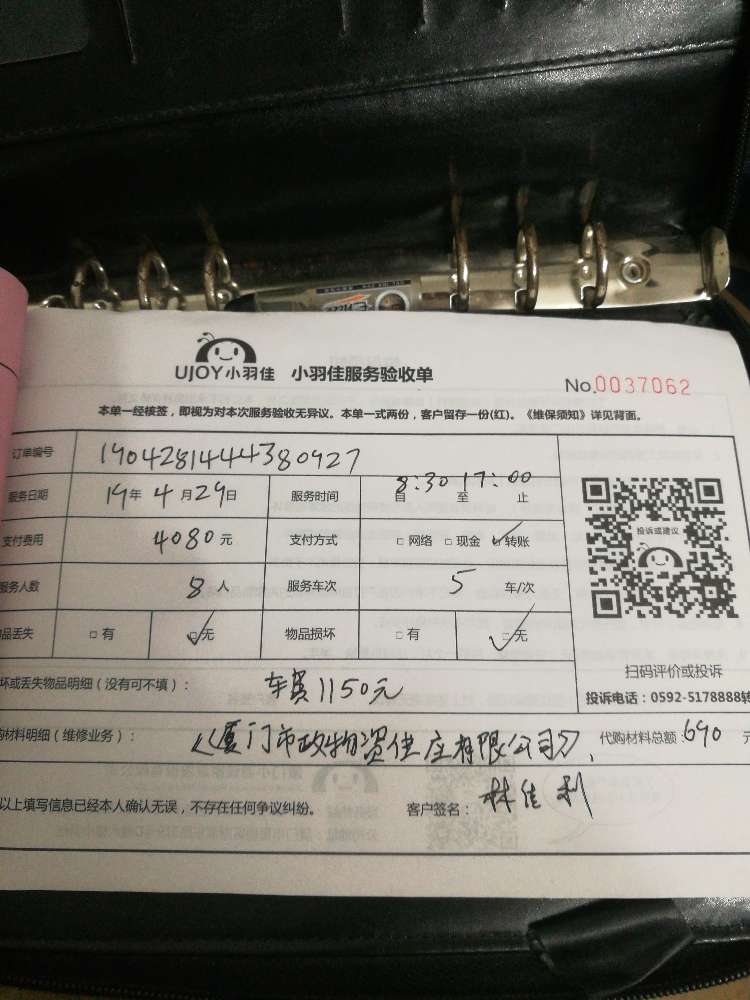 UJOY小羽佳 小羽佳服务验收单
No.0037062
本单一经核签，即视为对本次服务验收无异议。本单一式两份，客户留存一份(红)。《维保须知》详见背面。
订单编号 1904281444380927
服务日期 19年 4月29日 服务时间 8:30 17:00 自 至 止
支付费用 4080元 支付方式 □网络 □现金 ☑转账
服务人数 8人 服务车次 5 车/次
品丢失 □有 ☑无 物品损坏 □有 ☑无
投诉或建议
扫码评价或投诉
投诉电话：0592-5178888转
坏或丢失物品明细（没有可不填）： 车费1150元
购材料明细（维修业务）： 《厦门市政物资供应有限公司》, 代购材料总额：690 元
以上填写信息已经本人确认无误，不存在任何争议纠纷。 客户签名：林佳利